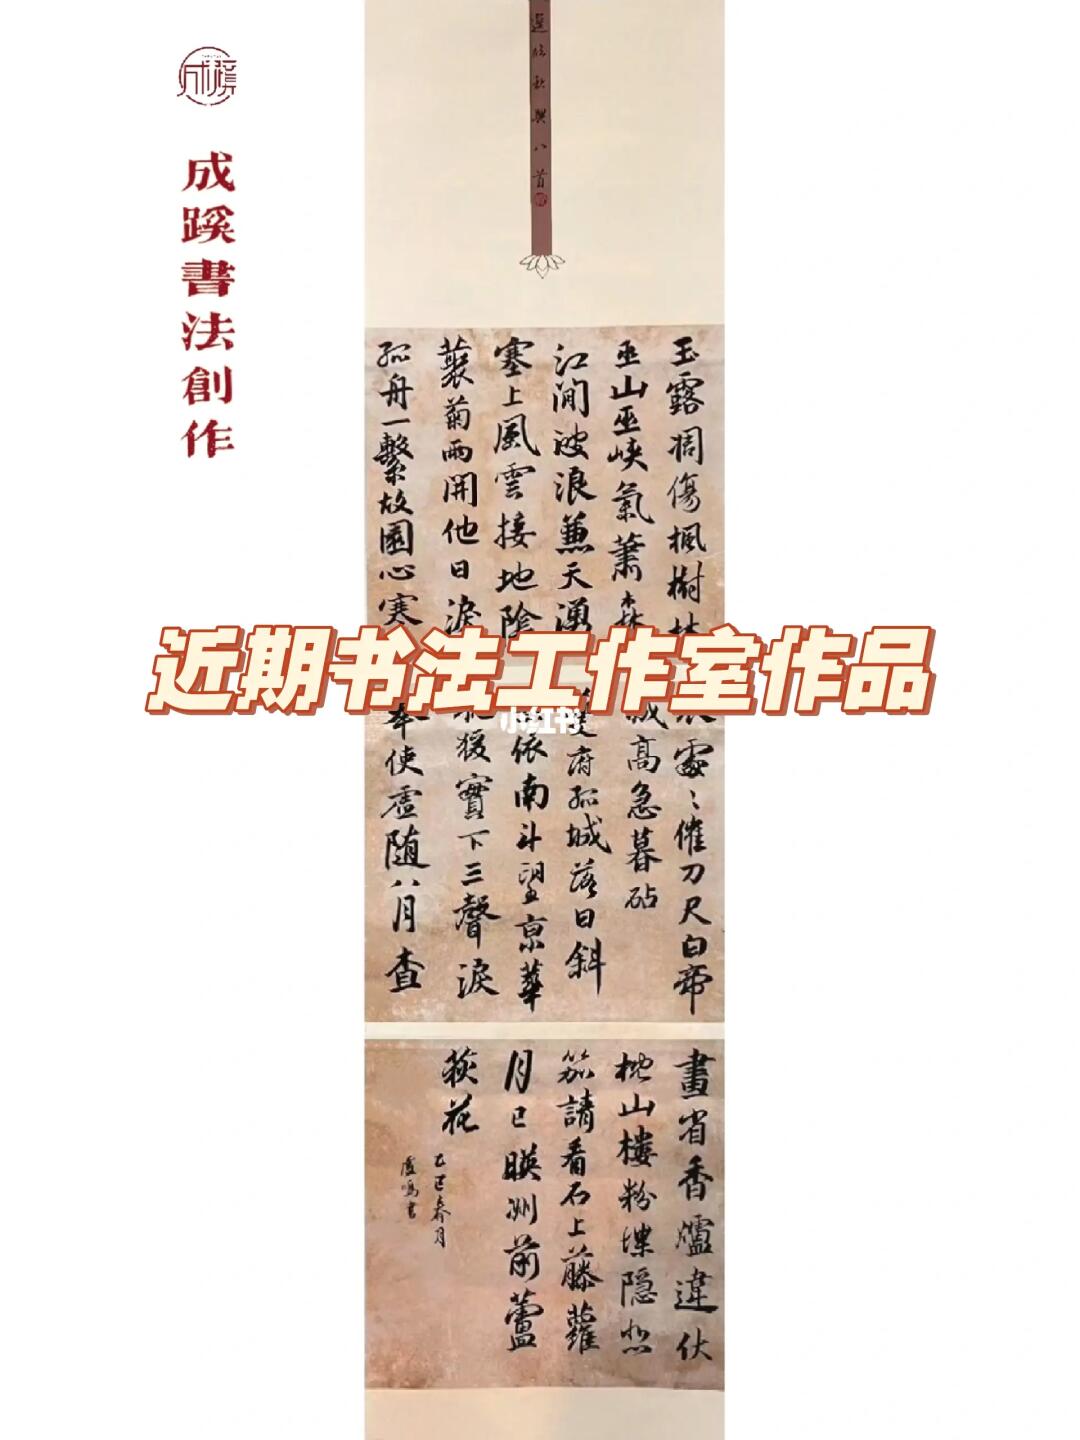 成蹊書法創作
秋興八首
玉露凋傷楓樹林
巫山巫峽氣蕭森
江間波浪兼天湧
塞上風雲接地陰
叢菊兩開他日淚
孤舟一繫故園心寒
近期书法工作室作品
小红书
衣處〻催刀尺白帝
城高急暮砧
府孤城落日斜
依南斗望京華
猿實下三聲淚
奉使虛隨八月查
畫省香爐違伏
枕山樓粉堞隱悲
笳請看石上藤蘿
月已暎洲前蘆
荻花
乙巳春月
盧鳴書